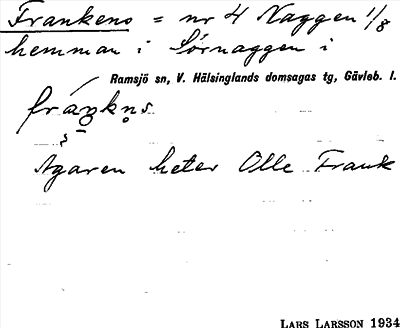 Frankens = nr 4 Naggen 1/8
hemman i Sörnaggen i
Ramsjö sn, V. Hälsinglands domsagas tg, Gävleb. l.
Ägaren heter Olle Frank
LARS LARSSON 1934